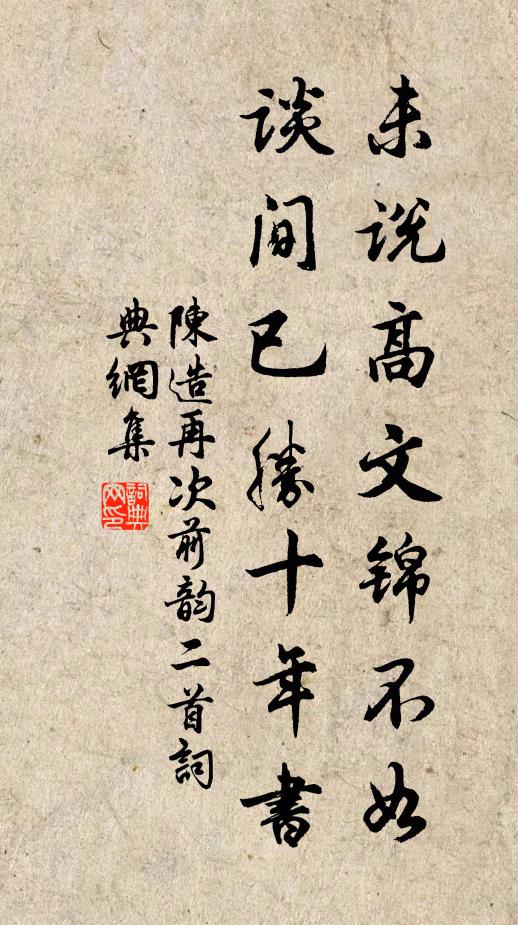 未说高文锦不如
谈间已胜十年書
陳造再次前韵二首詞
典網集
詞典網印